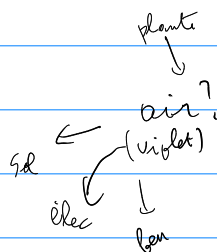 plante
air?
(violet)
sol
élec
feu